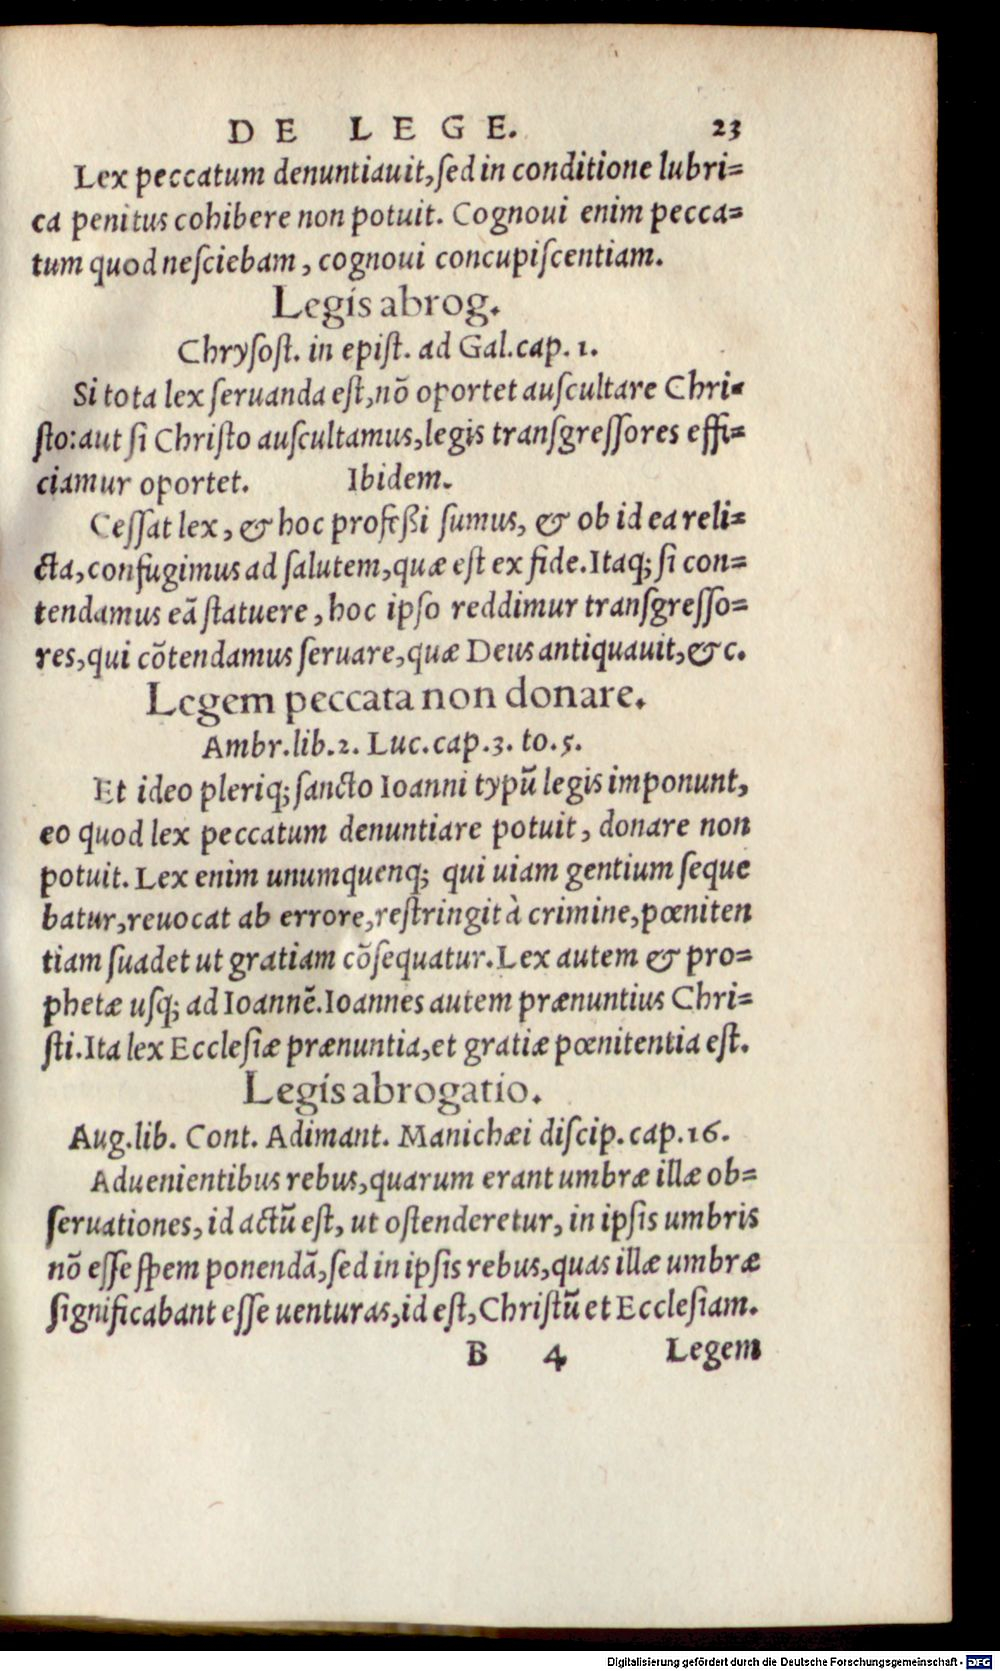 DE LEGE. 23
Lex peccatum denuntiauit, ſed in conditione lubri=
ca penitus cohibere non potuit. Cognoui enim pecca=
tum quod neſciebam, cognoui concupiſcentiam.
Legis abrog.
Chryſoſt. in epiſt. ad Gal. cap. 1.
Si tota lex ſeruanda eſt, nō oportet auſcultare Chri=
ſto: aut ſi Chriſto auſcultamus, legis transgreſſores effi=
ciamur oportet. Ibidem.
Ceſſat lex, & hoc profeßi ſumus, & ob id ea reli=
cta, confugimus ad ſalutem, quæ eſt ex fide. Itaq; ſi con=
tendamus eā ſtatuere, hoc ipſo reddimur transgreſſo=
res, qui cōtendamus ſeruare, quæ Deus antiquauit, &c.
Legem peccata non donare.
Ambr. lib. 2. Luc. cap. 3. to. 5.
Et ideo pleriq; ſancto Ioanni typū legis imponunt,
eo quod lex peccatum denuntiare potuit, donare non
potuit. Lex enim unumquenq; qui uiam gentium ſeque
batur, reuocat ab errore, reſtringit à crimine, pœniten
tiam ſuadet ut gratiam cōſequatur. Lex autem & pro=
phetæ uſq; ad Ioannē. Ioannes autem prænuntius Chri=
ſti. Ita lex Eccleſiæ prænuntia, et gratiæ pœnitentia eſt.
Legis abrogatio.
Aug. lib. Cont. Adimant. Manichæi diſcip. cap. 16.
Aduenientibus rebus, quarum erant umbræ illæ ob=
ſeruationes, id actū eſt, ut oſtenderetur, in ipſis umbris
nō eſſe ſpem ponendā, ſed in ipſis rebus, quas illæ umbræ
ſignificabant eſſe uenturas, id eſt, Chriſtū et Eccleſiam.
B 4 Legem
Digitalisierung gefördert durch die Deutsche Forschungsgemeinschaft - DFG